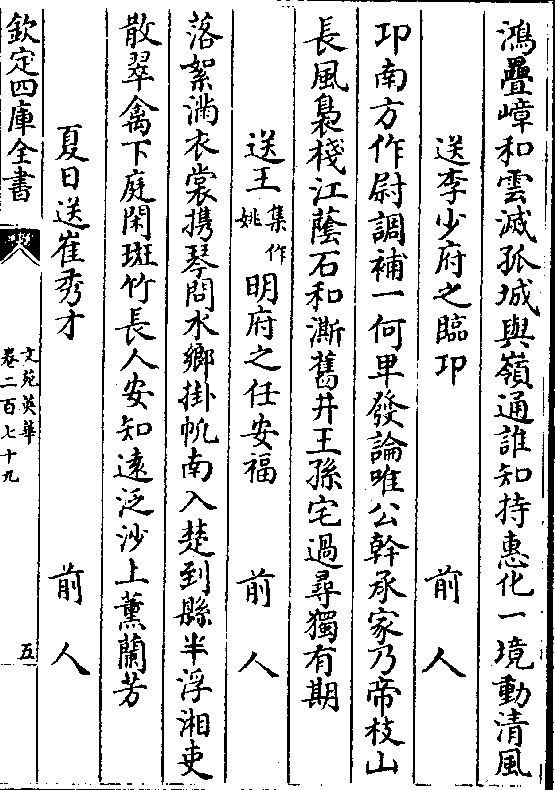 鴻疊嶂和雲滅孤城與嶺通誰知持惠化一境動清風
送李少府之臨邛 前人
邛南方作尉調補一何卑發論唯公幹承家乃帝枝山
長風裊棧江蔭石和澌舊井王孫宅過尋獨有期
送王集作姚明府之任安福 前人
落絮滿衣裳携琴問水鄉掛帆南入楚到縣半浮湘吏
散翠禽下庭閑斑竹長人安知遠泛沙上薫蘭芳
夏日送崔秀才 前人
欽定四庫全書
文苑英華
卷二百七十九
五